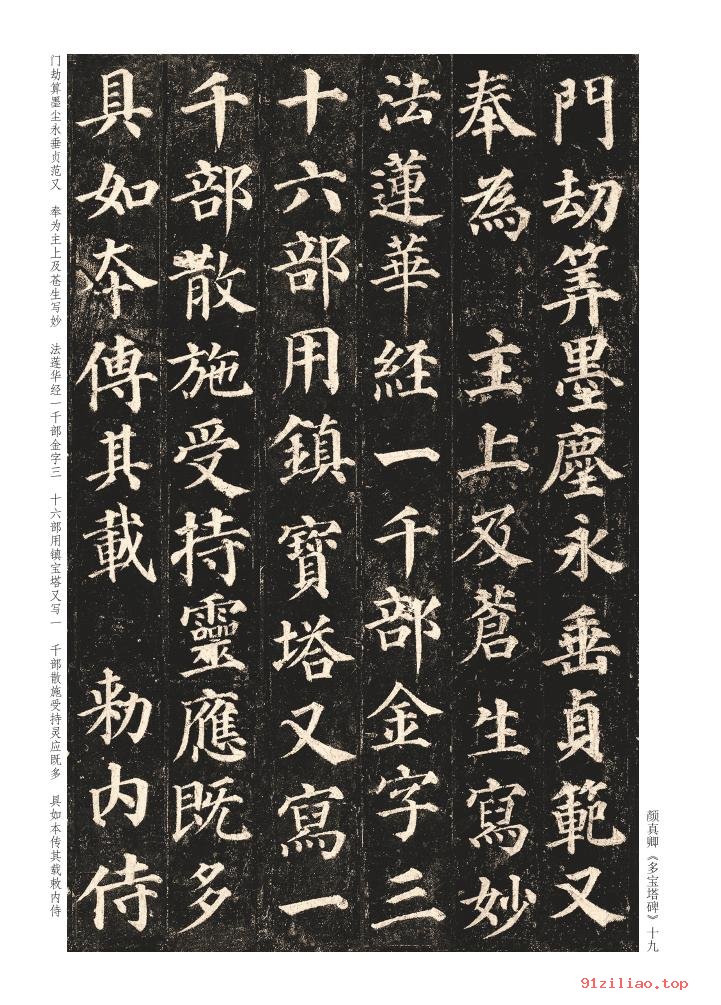 門劫筭墨塵永垂貞範又
奉為 主上及蒼生寫妙
法蓮華經一千部金字三
十六部用鎮寶塔又寫一
千部散施受持靈應既多
具如本傳其載 勑内侍
门劫算墨尘永垂贞范又 奉为主上及苍生写妙 法莲华经一千部金字三 十六部用镇宝塔又写一 千部散施受持灵应既多 具如本传其载敕内侍
颜真卿《多宝塔碑》十九
91ziliao.top